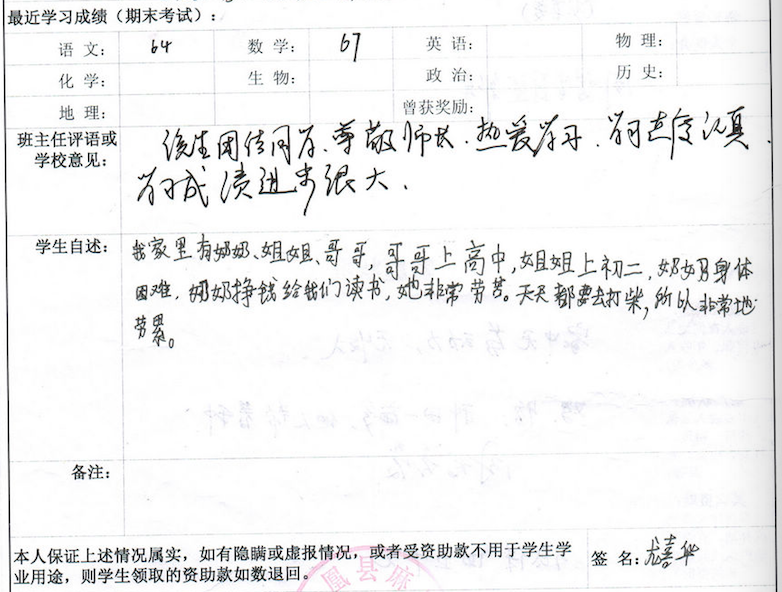 最近学习成绩（期末考试）:
语 文: 64 数 学: 67 英 语: 物 理:
化 学: 生 物: 政 治: 历 史:
地 理: 曾获奖励:
班主任评语或
学校意见:
该生团结同学、尊敬师长、热爱学习、学习态度认真、
学习成绩进步很大、
学生自述:
我家里有奶奶、姐姐、哥哥,哥哥上高中,姐姐上初二,奶奶身体
困难,奶奶挣钱给我们读书,她非常劳苦。天天都要去打柴,所以非常地
劳累。
备注:
本人保证上述情况属实，如有隐瞒或虚报情况，或者受资助款不用于学生学
业用途，则学生领取的资助款如数退回。
签 名:
凰县麻